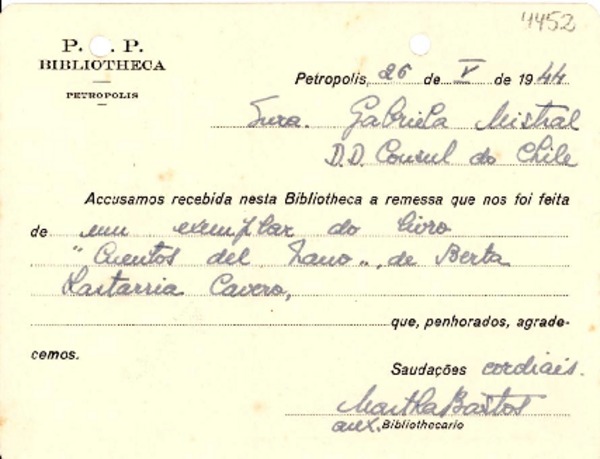 4452
P. P.
BIBLIOTHECA
PETROPOLIS
Petropolis, 26 de V de 1944
Snra. Gabriela Mistral
D.D. Consul do Chile
Accusamos recebida nesta Bibliotheca a remessa que nos foi feita
de um exemplar do livro
"Cuentos del , de Berta
Lastarria Cavero,
que, penhorados, agrade-
cemos.
Saudações cordiais.
Martha Bastos
aux. Bibliothecario